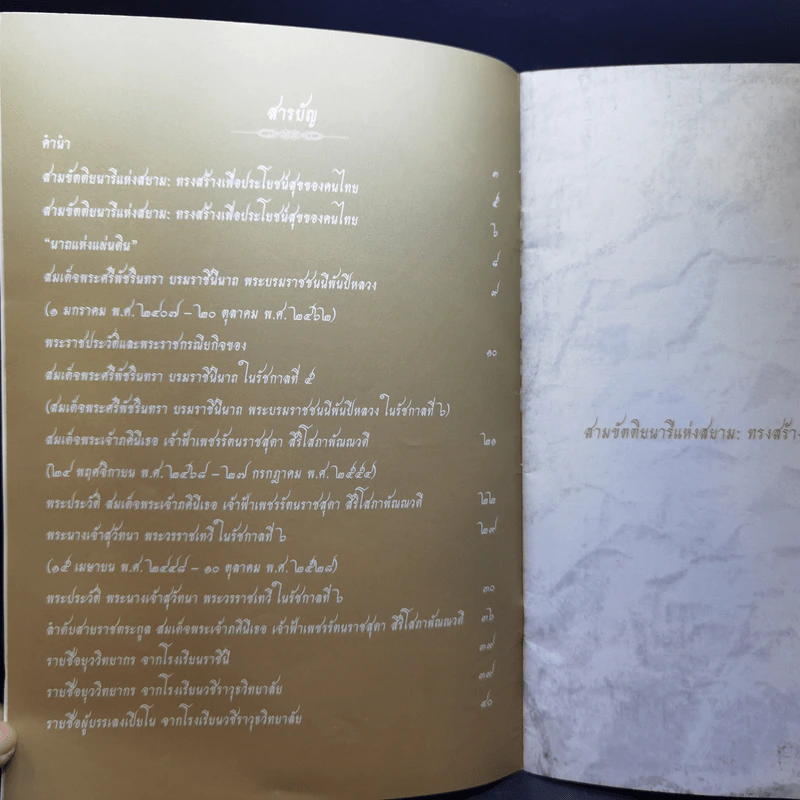 สารบัญ
คำนำ ๑
สามขัตติยนารีแห่งสยาม: ทรงสร้างเพื่อประโยชน์สุขของคนไทย ๕
สามขัตติยนารีแห่งสยาม: ทรงสร้างเพื่อประโยชน์สุขของคนไทย ๖
“นาถแห่งแผ่นดิน” ๘
สมเด็จพระศรีพัชรินทรา บรมราชินีนาถ พระบรมราชชนนีพันปีหลวง ๙
(๑ มกราคม พ.ศ. ๒๔๐๗ – ๒๐ ตุลาคม พ.ศ. ๒๔๖๒)
พระราชประวัติและพระราชกรณียกิจของ ๑๐
สมเด็จพระศรีพัชรินทรา บรมราชินีนาถ ในรัชกาลที่ ๕
(สมเด็จพระศรีพัชรินทรา บรมราชินีนาถ พระบรมราชชนนีพันปีหลวง ในรัชกาลที่ ๖)
สมเด็จพระเจ้าภคินีเธอ เจ้าฟ้าเพชรรัตนราชสุดา สิริโสภาพัณณวดี ๒๑
(๒๔ พฤศจิกายน พ.ศ. ๒๔๖๘ – ๒๗ กรกฎาคม พ.ศ. ๒๕๕๔)
พระประวัติ สมเด็จพระเจ้าภคินีเธอ เจ้าฟ้าเพชรรัตนราชสุดา สิริโสภาพัณณวดี ๒๒
พระนางเจ้าสุวัทนา พระวรราชเทวี ในรัชกาลที่ ๖ ๒๙
(๑๕ เมษายน พ.ศ. ๒๔๔๘ – ๑๐ ตุลาคม พ.ศ. ๒๕๒๘)
พระประวัติ พระนางเจ้าสุวัทนา พระวรราชเทวี ในรัชกาลที่ ๖ ๓๐
ลำดับสายราชตระกูล สมเด็จพระเจ้าภคินีเธอ เจ้าฟ้าเพชรรัตนราชสุดา สิริโสภาพัณณวดี ๓๖
รายชื่อยุววิทยากร จากโรงเรียนราชินี ๓๙
รายชื่อยุววิทยากร จากโรงเรียนวชิราวุธวิทยาลัย ๓๙
รายชื่อผู้บรรเลงเปียโน จากโรงเรียนวชิราวุธวิทยาลัย ๔๐
สามขัตติยนารีแห่งสยาม: ทรงสร้าง